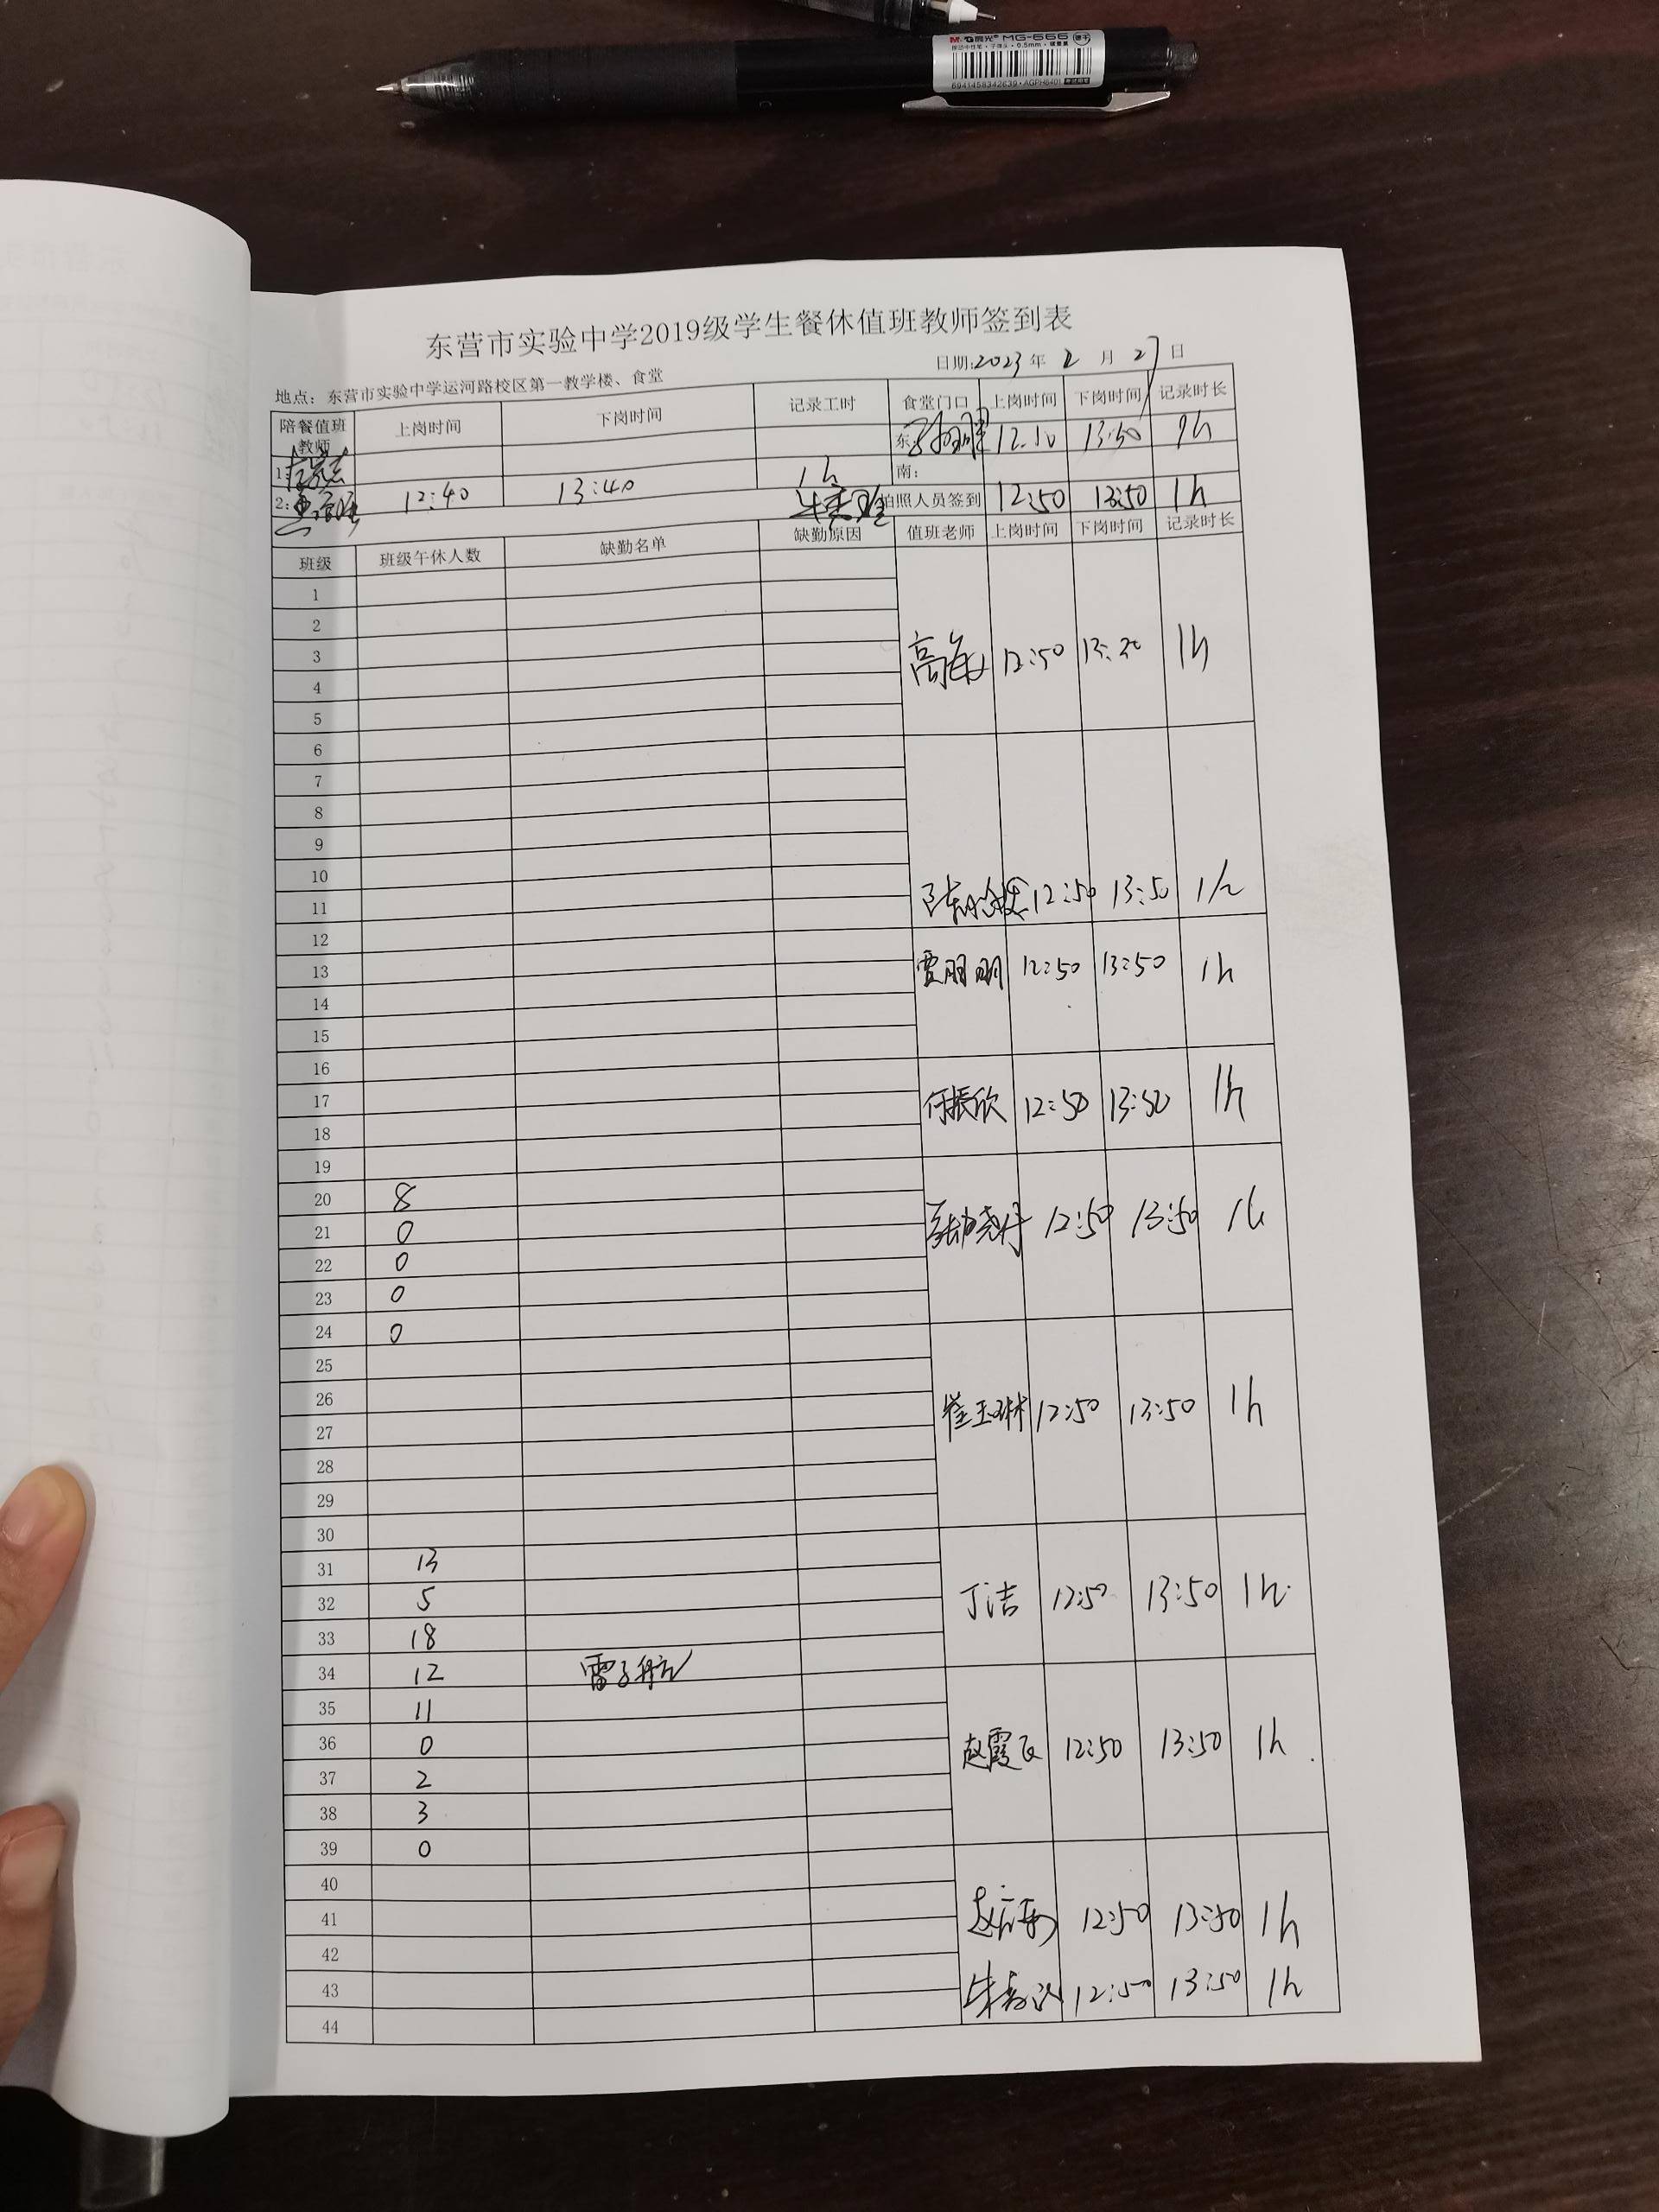 M&G晨光 MG-666
0.5mm
6941458342639 AGPH8401
东营市实验中学2019级学生餐休值班教师签到表
日期:2023年2月27日
地点：东营市实验中学运河路校区第一教学楼、食堂
陪餐值班教师 上岗时间 下岗时间 记录工时 食堂门口 上岗时间 下岗时间 记录时长
东: 12:10 13:50
1: 南:
2: 12:40 13:40 1h 拍照人员签到 12:50 13:50 1h
班级 班级午休人数 缺勤名单 缺勤原因 值班老师 上岗时间 下岗时间 记录时长
1
2
3 12:50 1h
4
5
6
7
8
9
10
11 12:50 13:50 1h
12
13 贾明明 12:50 13:50 1h
14
15
16
17 何振欣 12:50 13:50 1h
18
19
20 8
21 0 张晓丹 12:50 13:50 1h
22 0
23 0
24 0
25
26
27 崔玉琳 12:50 13:50 1h
28
29
30
31 13
32 5 丁洁 12:50 13:50 1h
33 18
34 12 雷子航
35 11
36 0 赵霞 12:50 13:50 1h
37 2
38 3
39 0
40
41 12:50 13:50 1h
42
43 12:50 13:50 1h
44